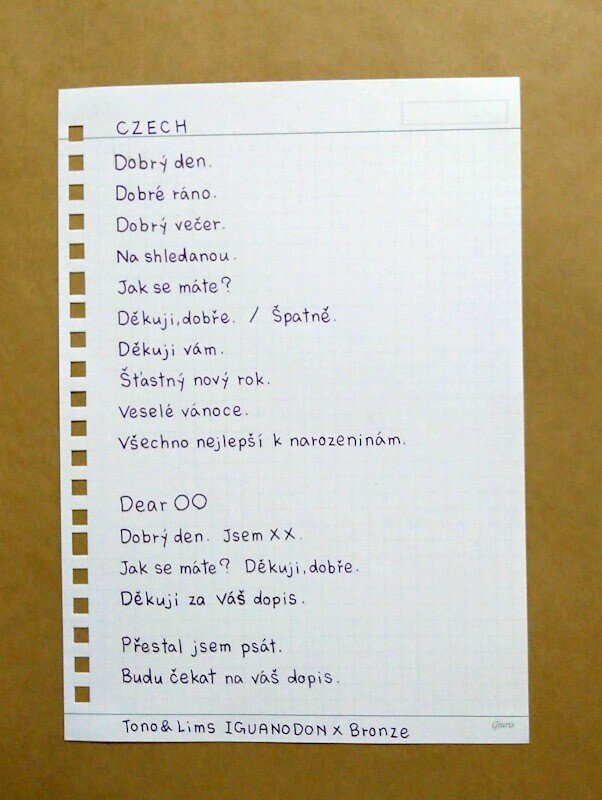 CZECH
Dobrý den.
Dobré ráno.
Dobrý večer.
Na shledanou.
Jak se máte?
Děkuji, dobře. / Špatně.
Děkuji vám.
Šťastný nový rok.
Veselé vánoce.
Všechno nejlepší k narozeninám.
Dear ○○
Dobrý den. Jsem XX.
Jak se máte? Děkuji, dobře.
Děkuji za Váš dopis.
Přestal jsem psát.
Budu čekat na váš dopis.
Tono & Lims IGUANODON x Bronze